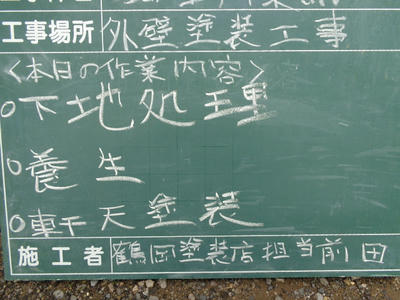 工事場所 外壁塗装工事
〈本日の作業内容〉
○下地処理
○養生
○軒天塗装
施工者 鶴岡塗装店担当前田